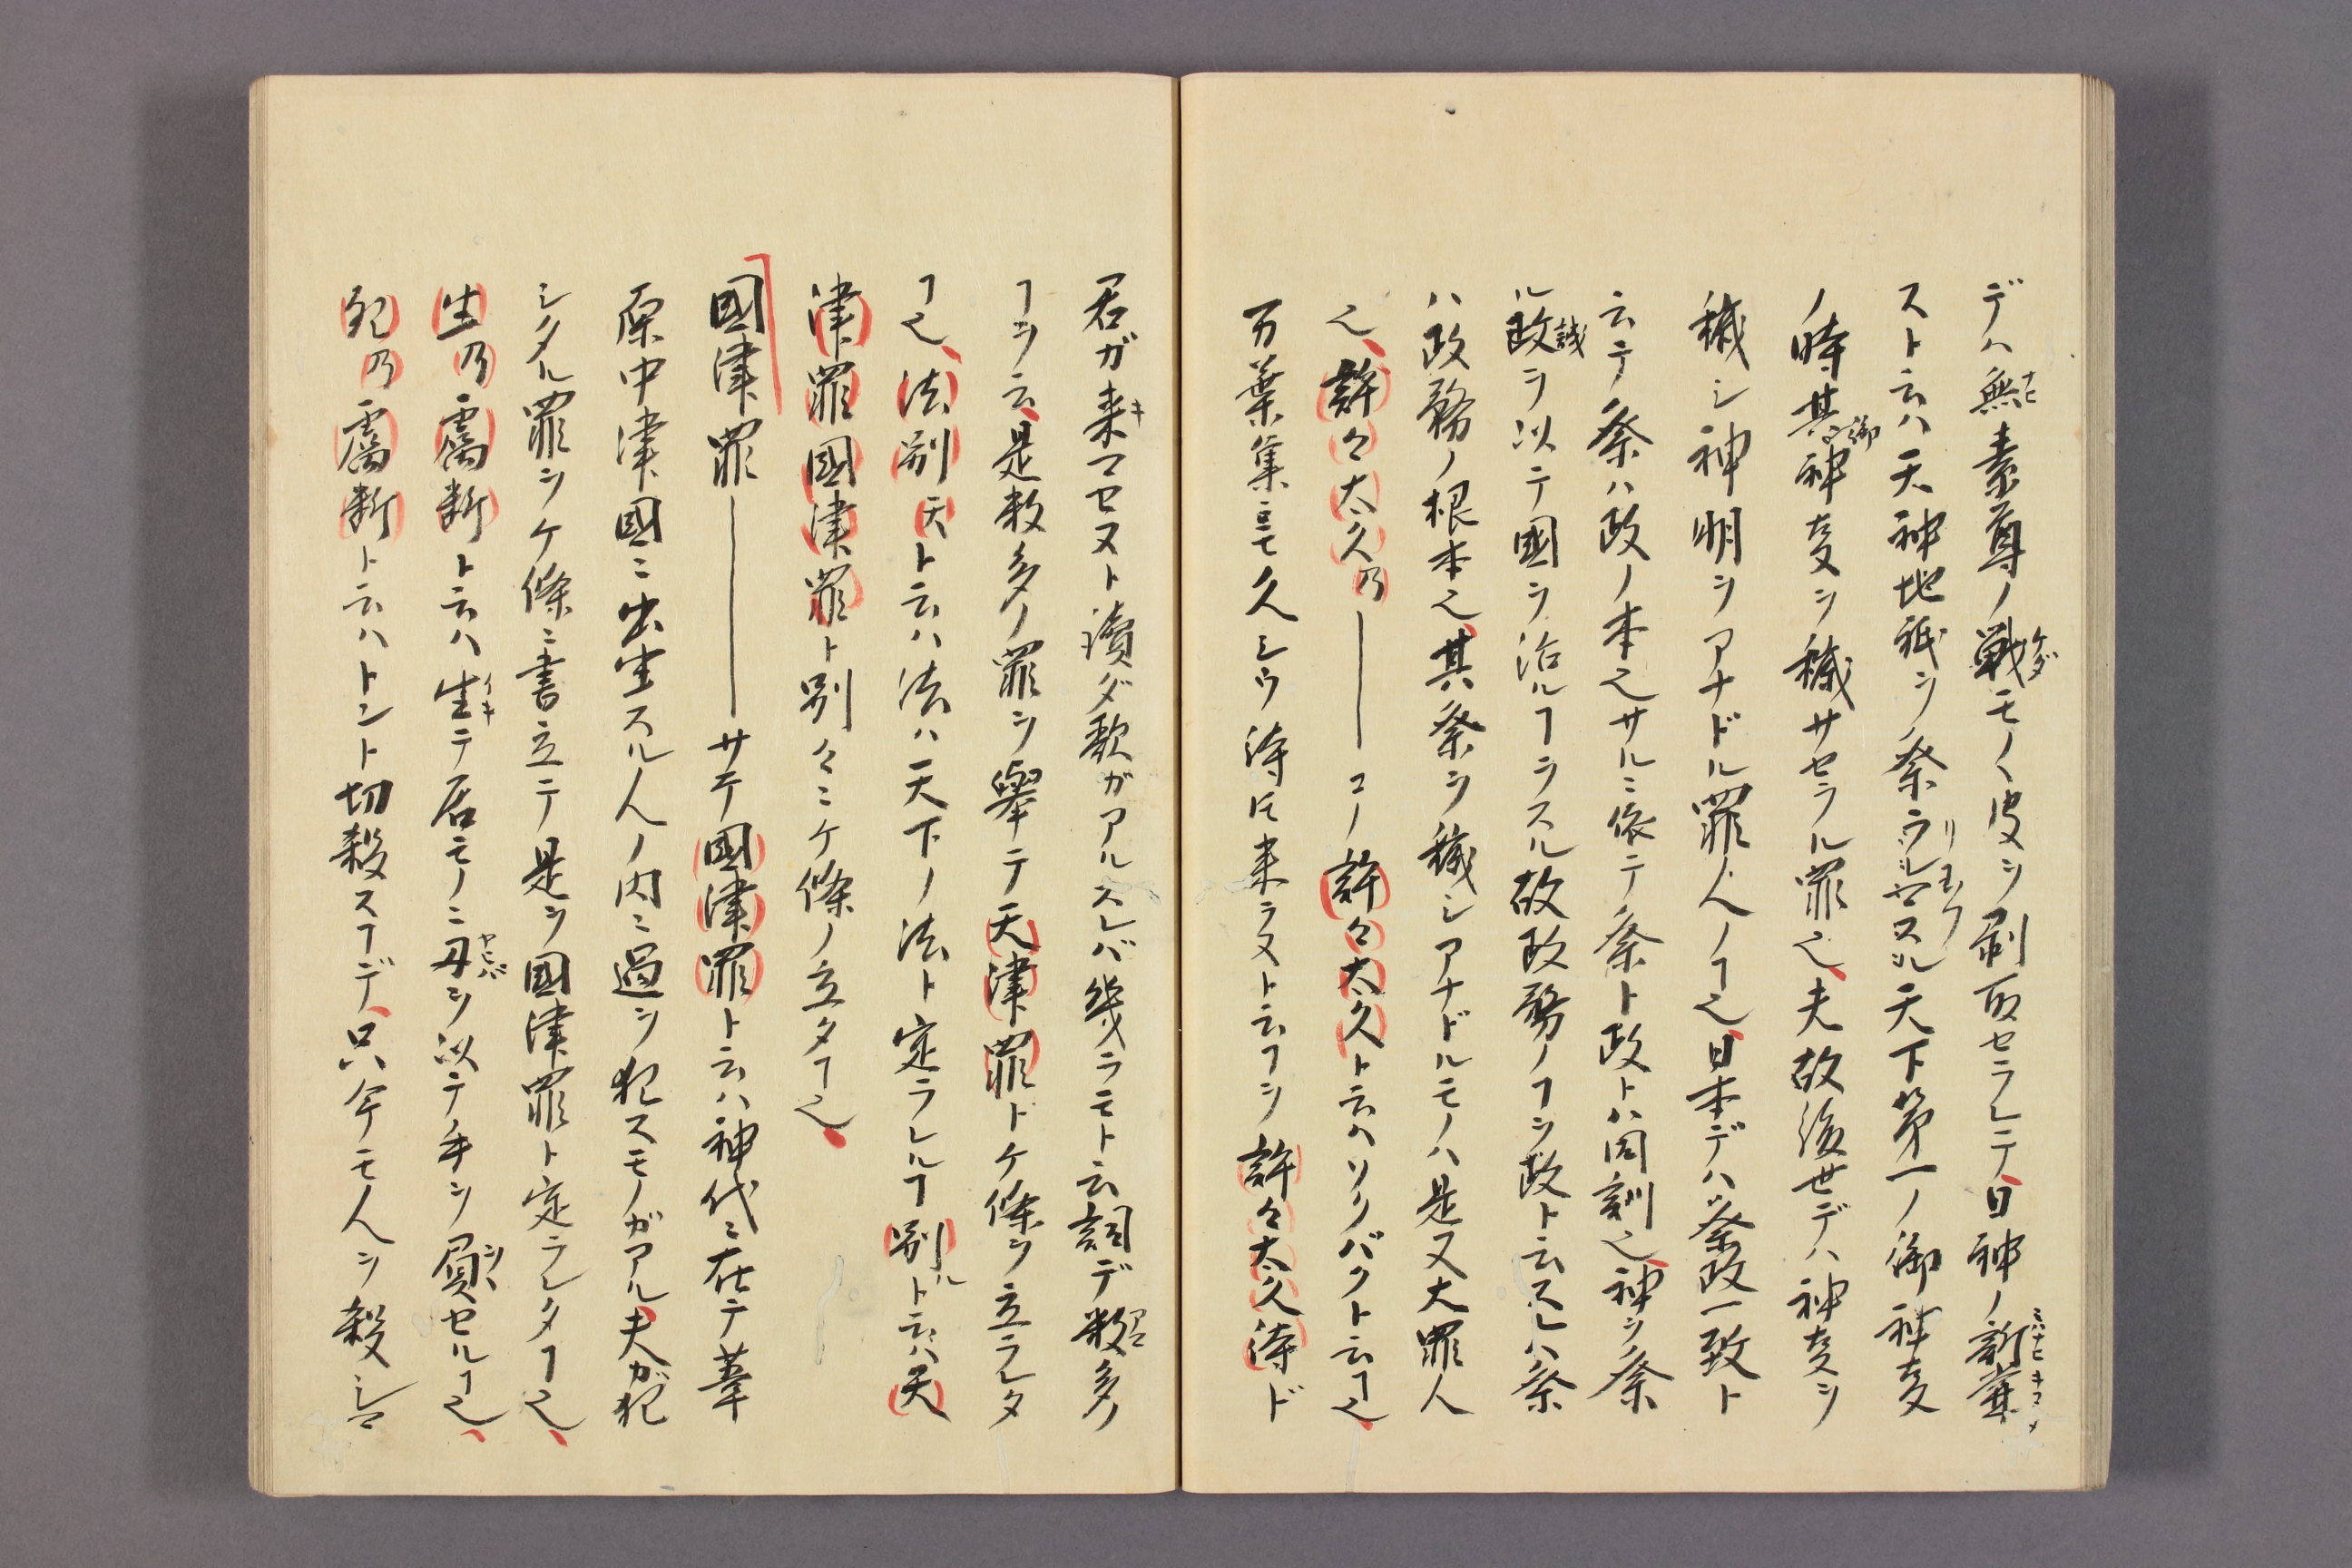 デハ無素尊ノ戦モノヽ皮ヲ剥取セラレテ日神ノ新嘗
ストハ天神地祇ヲ祭ラルヽ天下第一ノ御神変
ノ時其御神変ヲ穢サセラル罪也夫故後世デハ神変ヲ
穢シ神明ヲアナドル罪人ノヿ也日本デハ祭政一致ト
云テ祭ハ政ノ本也サルニ依テ祭ト政トハ同訓也神ヲ祭
ル誠政ヲ以テ國ヲ治ルヿヲスル故政務ノヿヲ政ト云スレハ祭
ハ政務ノ根本也其祭ヲ穢シアナドルモノハ是又大罪人
也許々太久乃――コノ許々太久ト云ハソクバクト云ヿ也
万葉集ニモ久シウ待トモ来ラヌト云ヿヲ許々太久待ド
君ガ来マセヌト讀ダ歌ガアルスレバ幾ラモト云詞デ数多ノ
ヿヲ云是数多ノ罪ヲ舉テ天津罪トケ條ヲ立ラレタ
ヿ也法別天ト云ハ法ハ天下ノ法ト定ラレルヿ別ルト云ハ天
津罪國津罪ト別々ニケ條ノ立タヿ也
國津罪――サテ國津罪ト云ハ神代ニ在テ葦
原中津國ニ出生スル人ノ内ニ過ヲ犯スモノガアル夫ガ犯
シタル罪ヲケ條ニ書立テ是ヲ國津罪ト定ラレタヿ也
生乃膚断ト云ハ生テ居モノニ刃ヲ以テ手ヲ負セルヿ也
死乃膚断ト云ハトント切殺スヿデ只今モ人ヲ殺シマ